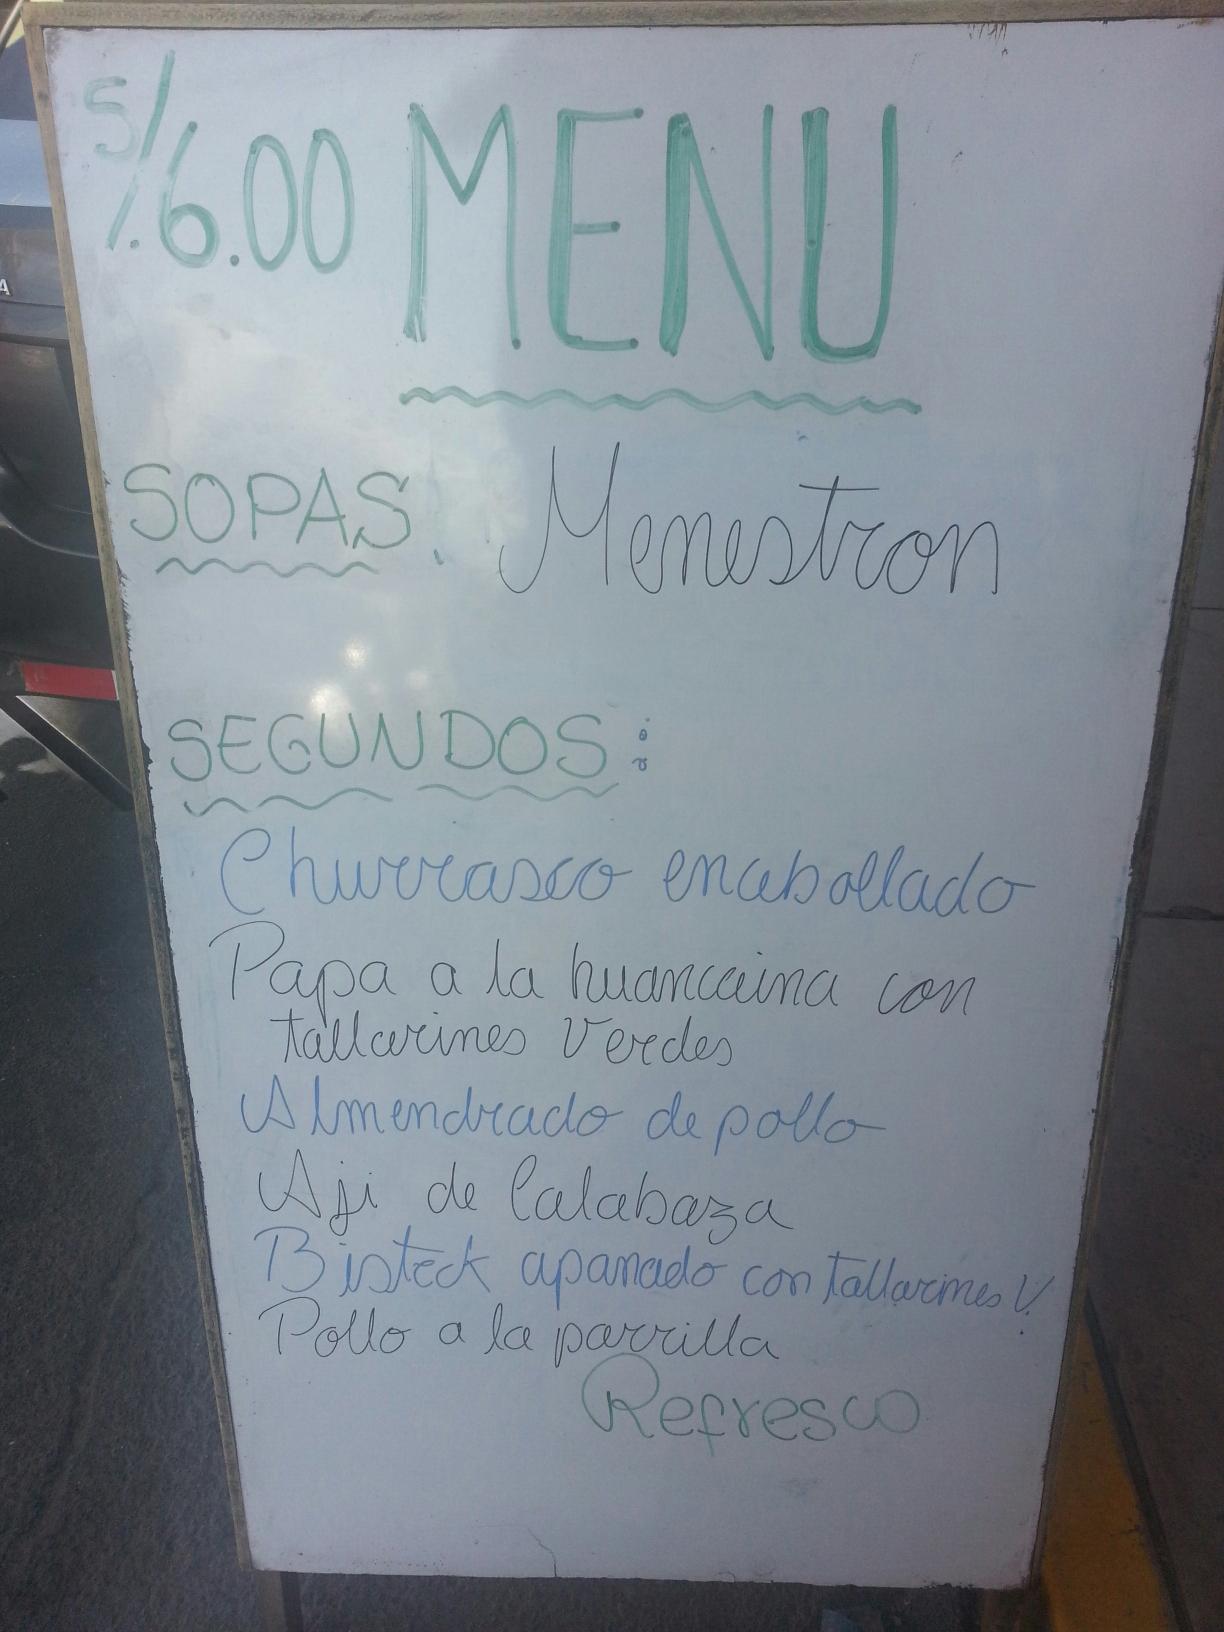 S/. 6.00 MENU
SOPAS: Menestron
SEGUNDOS:
Churrasco encebollado
Papa a la huancaina con
tallarines Verdes
Almendrado de pollo
Aji de Calabaza
Bisteck apanado con tallarines V.
Pollo a la parrilla
Refresco